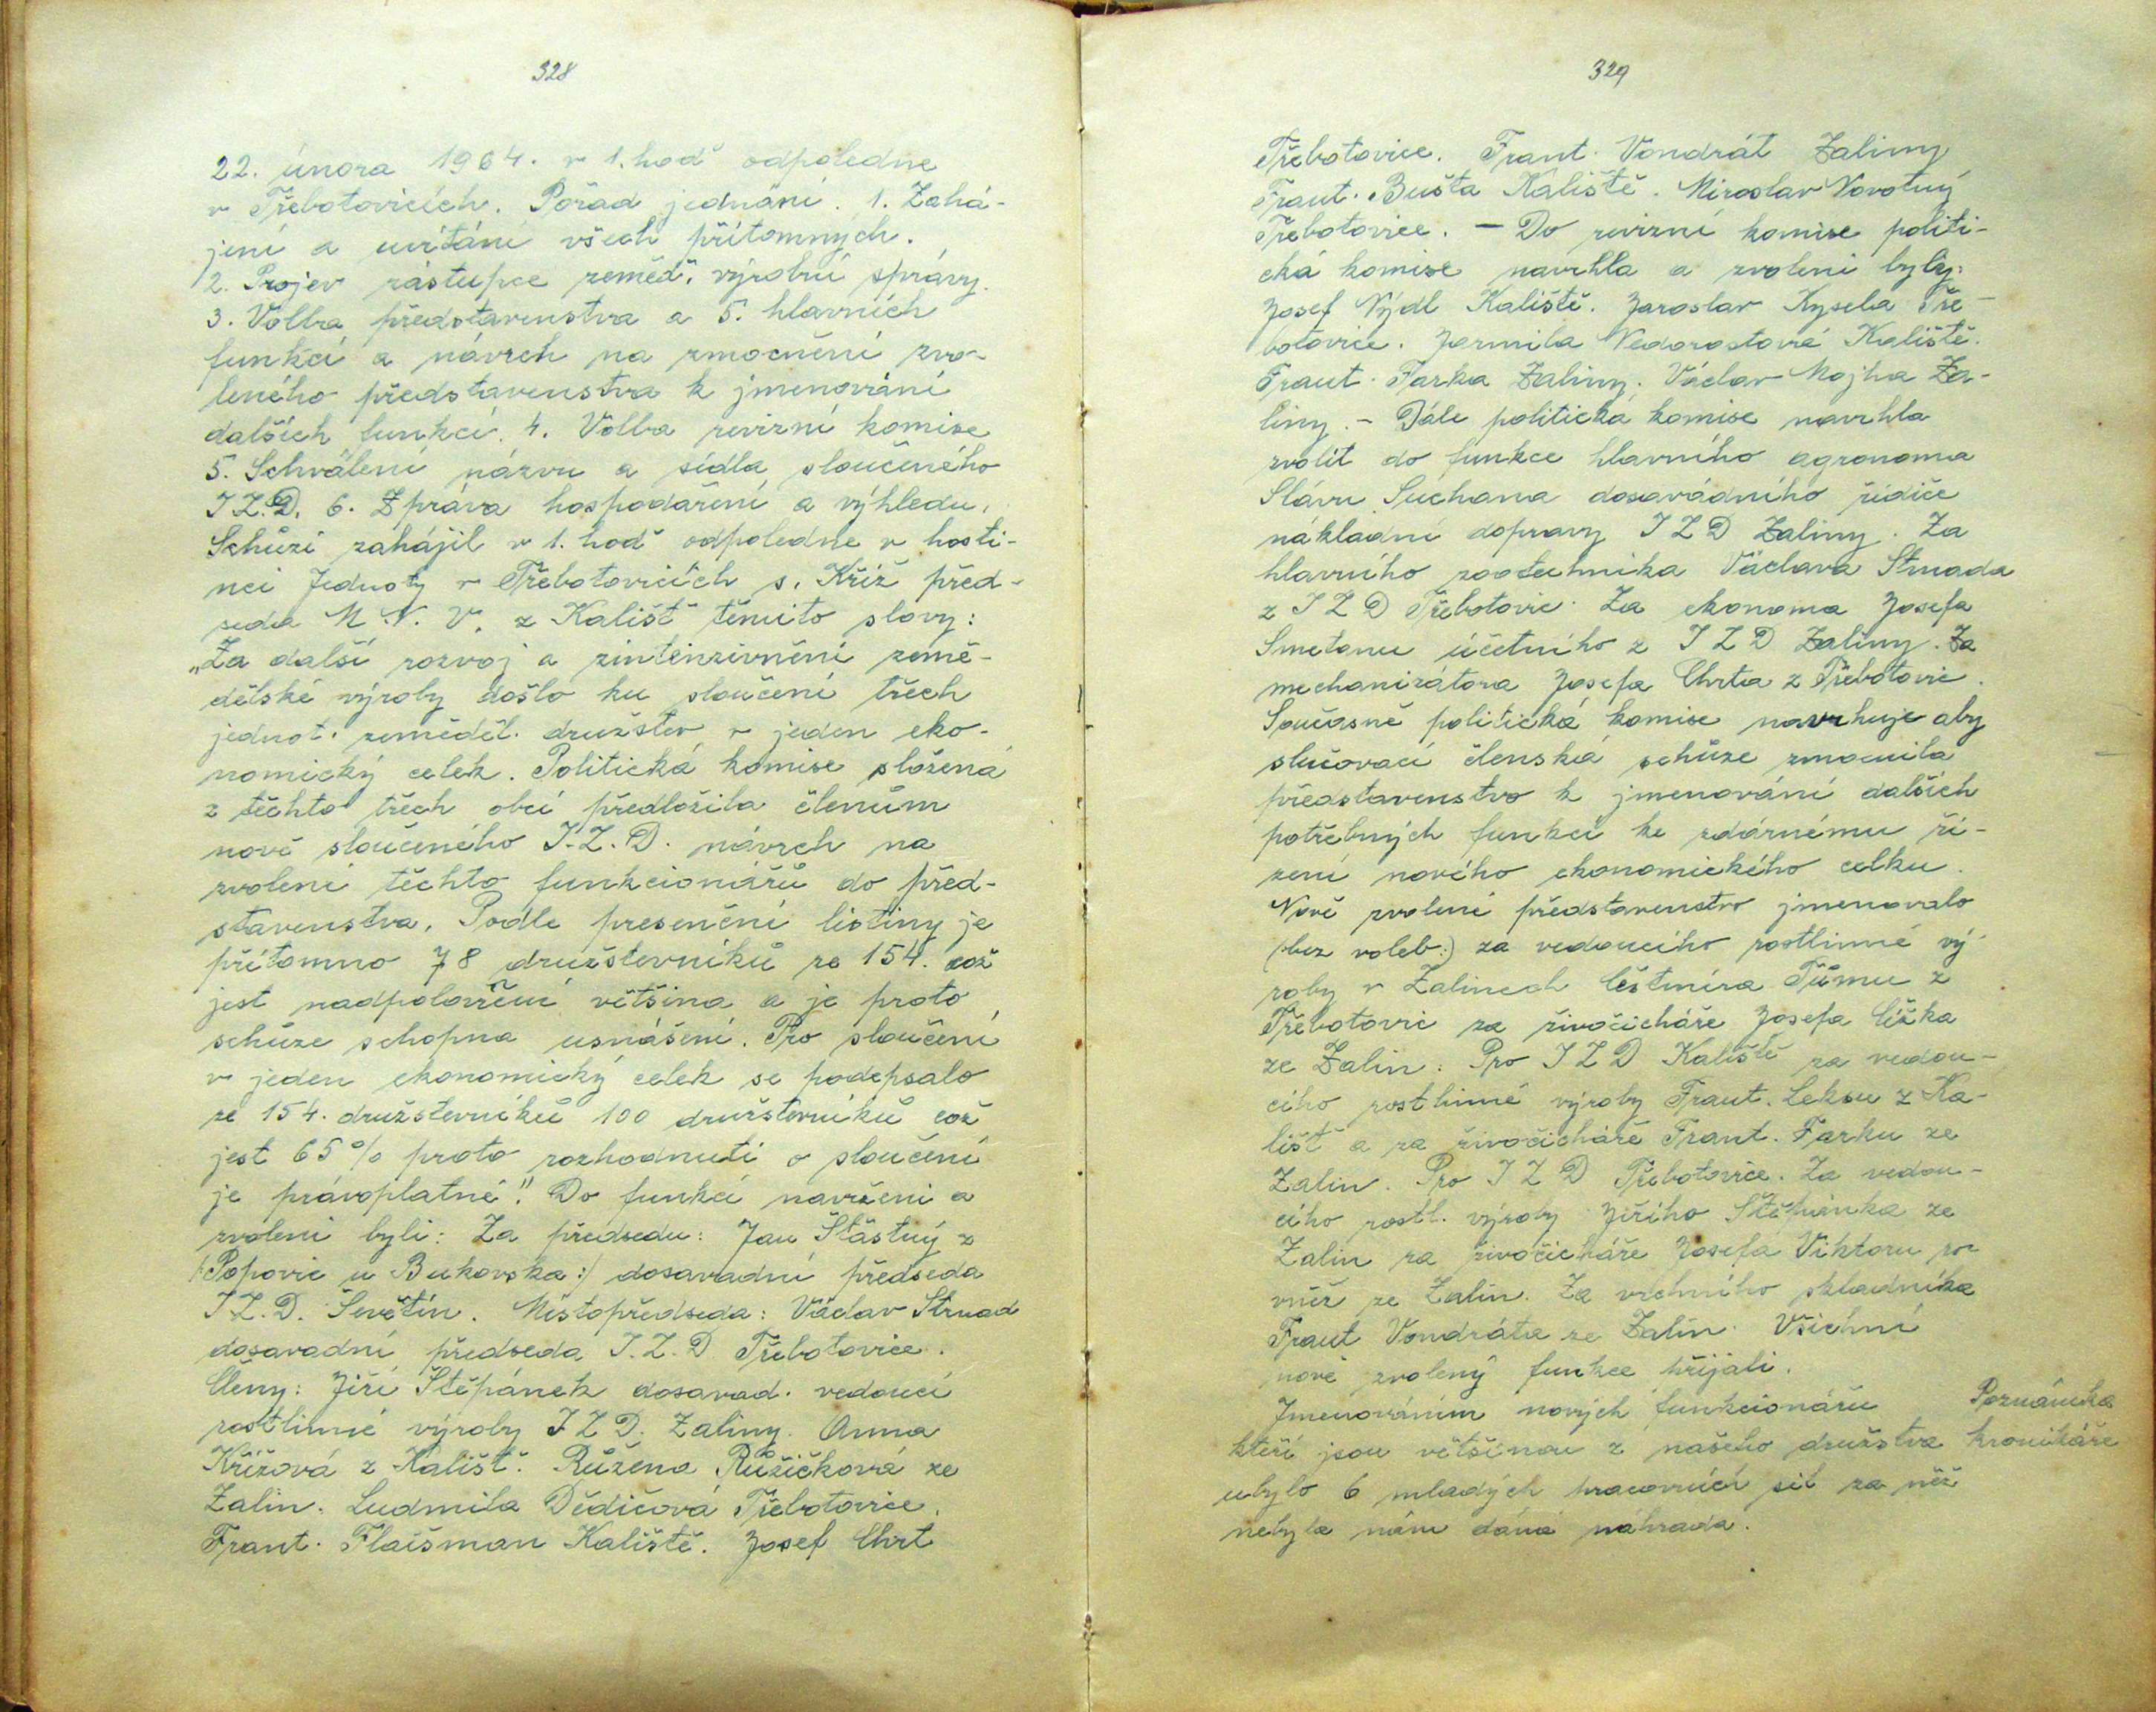 328
22. února 1964. v 1. hod odpoledne
v Třebotovicích. Pořad jednání. 1. Zahá-
jení a uvítání všech přítomných.
2. Projev zástupce zeměd. výrobní správy.
3. Volba představenstva a 5. hlavních
funkcí a návrch na zmocnění zvo-
leného představenstva k jmenování
dalších funkcí. 4. Volba revizní komise
5. Schválení názvu a sídla sloučeného
J.Z.D. 6. Zpráva hospodaření a výhledu.
Schůzi zahájil v 1. hod odpoledne v hosti-
nci Jednoty v Třebotovicích s. Kříž před-
seda M.N.V. z Kališť těmito slovy:
„Za další rozvoj a zintenzivnění země-
dělské výroby došlo ku sloučení třech
jednot. zeměděl. družstev v jeden eko-
nomický celek. Politická komise složená
z těchto třech obcí předložila členům
nově sloučeného J.Z.D. návrch na
zvolení těchto funkcionářů do před-
stavenstva. Podle presenční listiny je
přítomno 78 družstevníků ze 154. což
jest nadpoloviční většina a je proto
schůze schopna usnášení. Pro sloučení
v jeden ekonomický celek se podepsalo
ze 154. družstevníků 100 družstevníků což
jest 65% proto rozhodnutí o sloučení
je právoplatné." Do funkcí navrženi a
zvoleni byli: Za předsedu: Jan Šťastný z
/:Popovic u Bukovska:/ dosavadní předseda
J.Z.D. Ševětín. Místopředseda: Václav Strnad
dosavadní předseda J.Z.D. Třebotovice.
Členy: Jiří Štěpánek dosavad. vedoucí
rostlinné výroby JZD. Zaliny. Anna
Křížová z Kališť. Růžena Růžičková ze
Zalin. Ludmila Dědičová Třebotovice.
Frant. Flaišman Kaliště. Josef Chrt
329
Třebotovice. Frant. Vondrát Zaliny
Frant. Bušta Kaliště. Miroslav Novotný
Třebotovice. – Do revizní komise politi-
cká komise navrhla a zvoleni byly:
Josef Výdl Kaliště. Jaroslav Kysela Tře-
botovice. Jarmila Nedorostová Kaliště.
Frant. Farka Zaliny. Václav Mojha Za-
liny. – Dále politická komise navrhla
zvolit do funkce hlavního agronoma
Slávu Suchana dosavádního řidiče
nákladní dopravy JZD Zaliny. Za
hlavního zootechnika Václava Strnada
z JZD Třebotovic. Za ekonoma Josefa
Smetanu účetního z JZD Zaliny. Za
mechanizátora Josefa Chrta z Třebotovic.
Současně politická komise navrhuje aby
slučovací členská schůze zmocnila
představenstvo k jmenování dalších
potřebných funkcí ke zdárnému ří-
zení nového ekonomického celku.
Nově zvolené představenstvo jmenovalo
(bez voleb:) za vedoucího rostlinné vý-
roby v Zalinech Čestmíra Tůmu z
Třebotovic za živočicháře Josefa Čížka
ze Zalin. Pro JZD Kaliště za vedou-
cího rostlinné výroby Frant. Leksu z Ka-
lišť a za živočicháře Frant. Farku ze
Zalin. Pro JZD Třebotovice. Za vedou-
cího rostl. výroby Jiřího Štěpánka ze
Zalin za živočicháře Josefa Viktoru ro-
vněž ze Zalin. Za vrchního skladníka
Frant Vondráta ze Zalin. Všichni
nově zvolený funkce přijali.
Jmenováním nových funkcionářů
kteří jsou většinou z našeho družstva
ubylo 6 mladých pracovních sil za něž
nebyla nám dána náhrada.
Poznámka
kronikáře